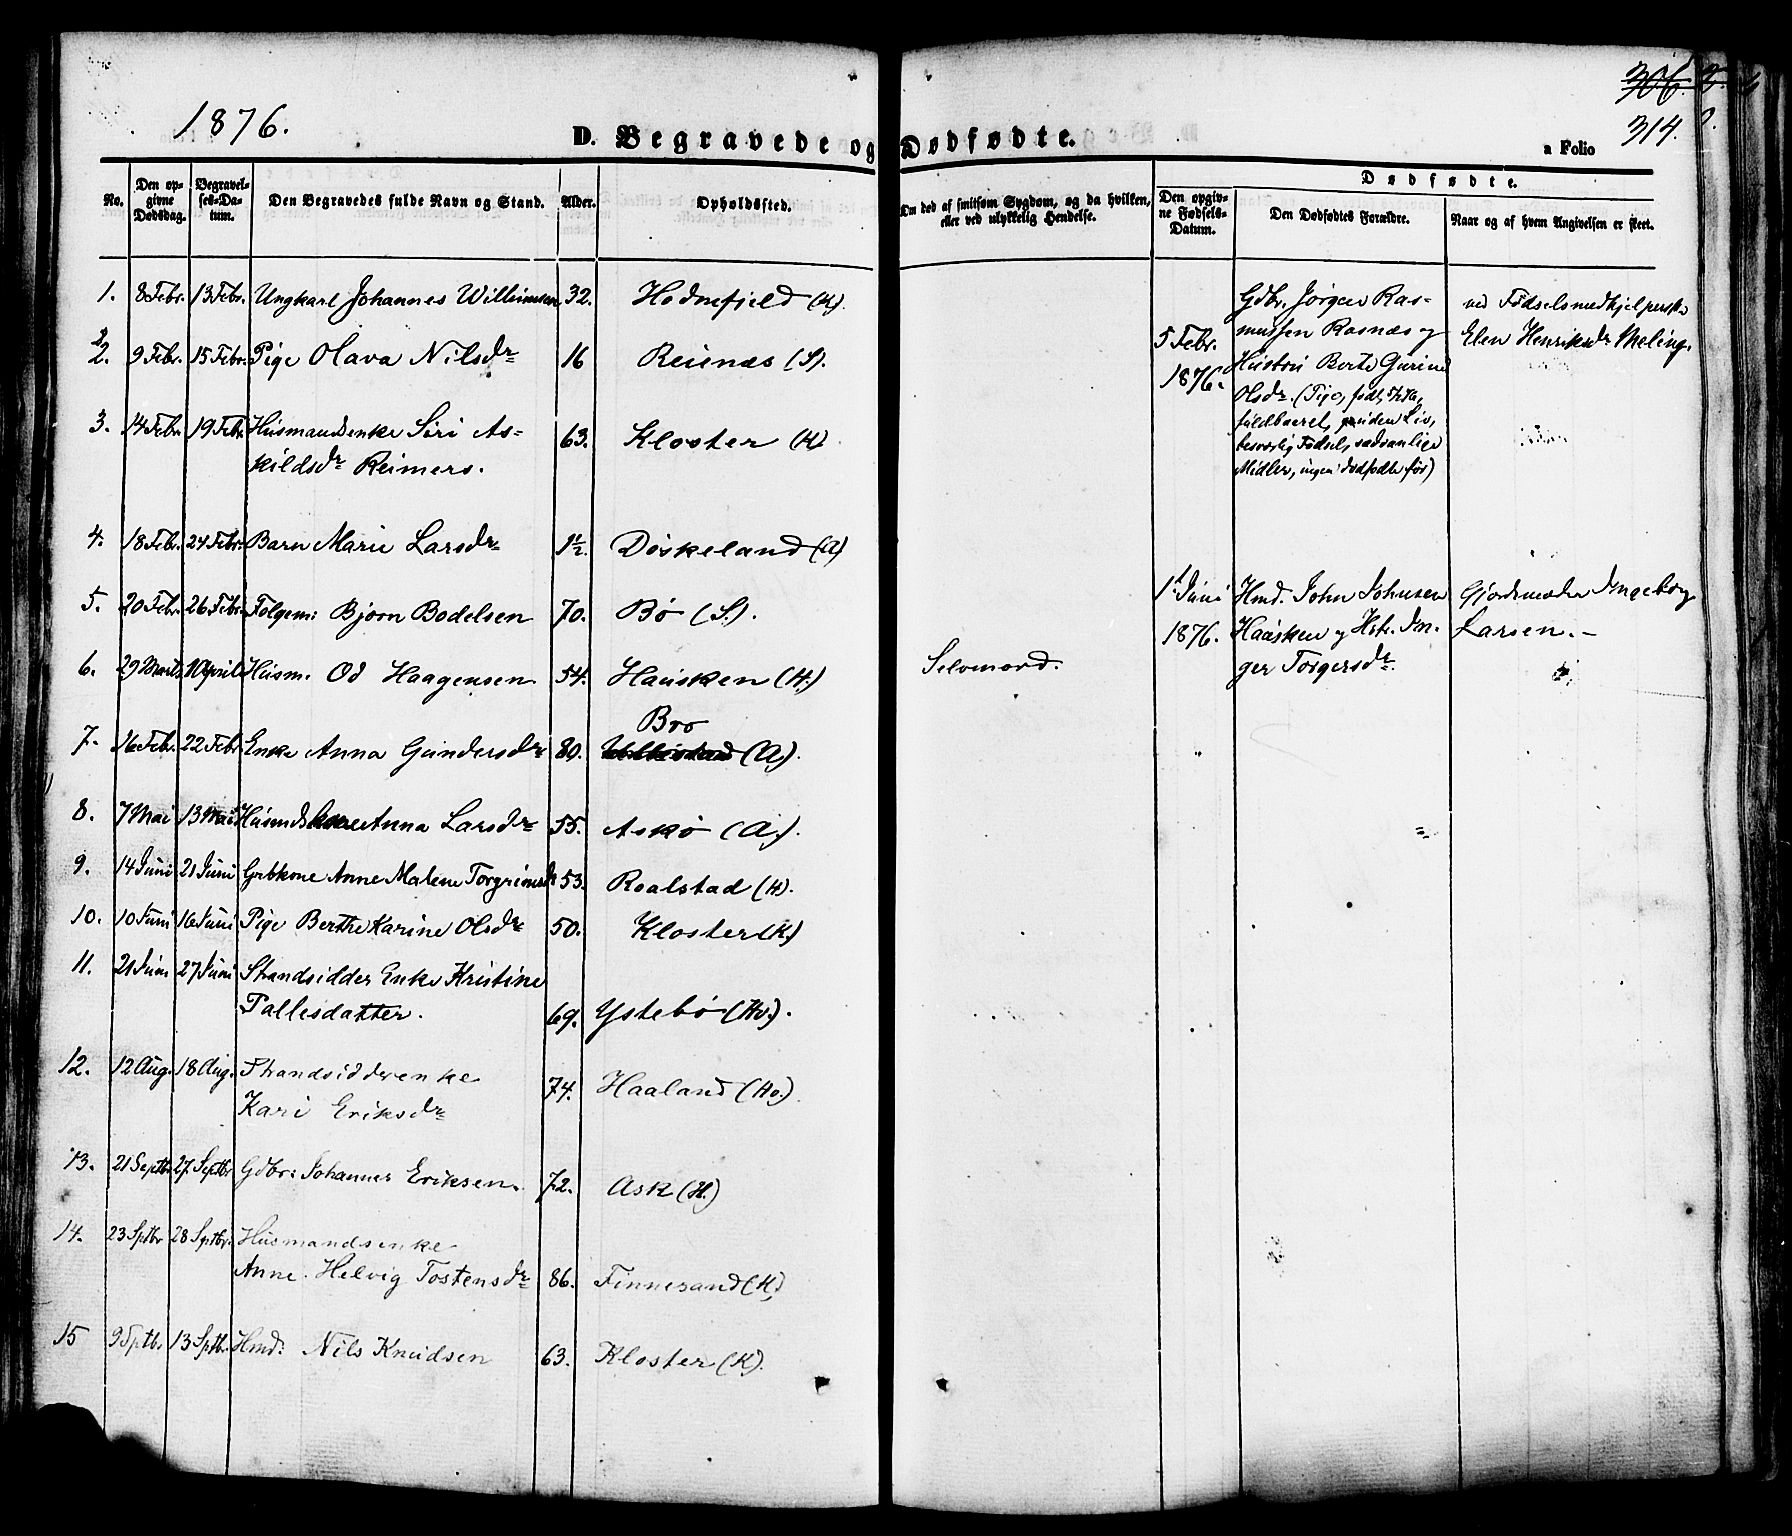 306.
314.
1876.
D. Begravede og Dødfødte.
a Folio
No.
Den opgivne Dødsdag.
Begravelses-Datum.
Den Begravedes fulde Navn og Stand.
Alder.
Opholdssted.
Om død af smitsom Sygdom, og da hvilken, eller ved ulykkelig Hendelse.
Dødfødte.
Den opgivne Fødsels-Datum.
Den Dødfødtes Forældre.
Naar og af hvem Angivelsen er skeet.
1. 8 Febr. 13 Febr. Ungkarl Johannes Willumsen 32. Hodnefjeld
2. 9 Febr. 15 Febr. Pige Olava Nilsdr 16 Reienæs (S).
3. 14 Febr. 19 Febr. Husmandsenke Siri As-
kildsdr Reimers. 63. Kloster
4. 18 Febr. 24 Febr. Barn Marie Larsdr 1½. Døskeland (A)
5. 20 Febr. 26 Febr. Følgem: Bjørn Bodelsen 70. Bø (S).
6. 29 Marts 10 April Husm. Od Haagensen 54. Hausken (H.) Selvmord.
Bro
7. 16 Febr. 22 Febr. Enke Anna Gundersdr 80. (A).
8. 7 Mai 13 Mai Anna Larsdr 55. Askø (A.).
9. 14 Juni 21 Juni Gbkone Anne Malene Torgrimsdr 53. Roalstad (H).
10. 10 Juni 16 Juni Pige Berthe Karine Olsdr 50. Kloster (K.)
11. 21 Juni 27 Juni Strandsidder Enke Kristine
Tallesdatter. 69. Ystebø (Hv.).
12. 12 Aug. 18 Aug. Strandsidderenke
Kari Eriksdr 74. Haaland (Hv.)
13. 21 Septbr 27 Septbr Gdbr: Johannes Eriksen. 72. Ask (H.)
14. 23 Sptbr 28 Sptbr. Husmandsenke
Anne Helvig Tostensdr 86. Finnesand (H)
15 9 Sptbr. 13 Sptbr. Hmd: Nils Knudsen 63. Kloster (K).
5 Febr.
1876.
Gdbr. Jörgen Ras-
mussen Rasnæs og
Hustru Berte Gurine
Olsdr. (Pige, født 5/2 76,
fuldbaaret, uden Liv,
besværlig Fødsel, sædvanlige
Midler, ingen dødfødte før)
ved Fødselsmedhjelperske
Elen Henriksdr Meling.
1 Juni
1876.
Hmd. John Johnsen
Haasken og Hstr. In-
ger Torgersdr.
Gjordemoder Ingeborg
Larsen. –